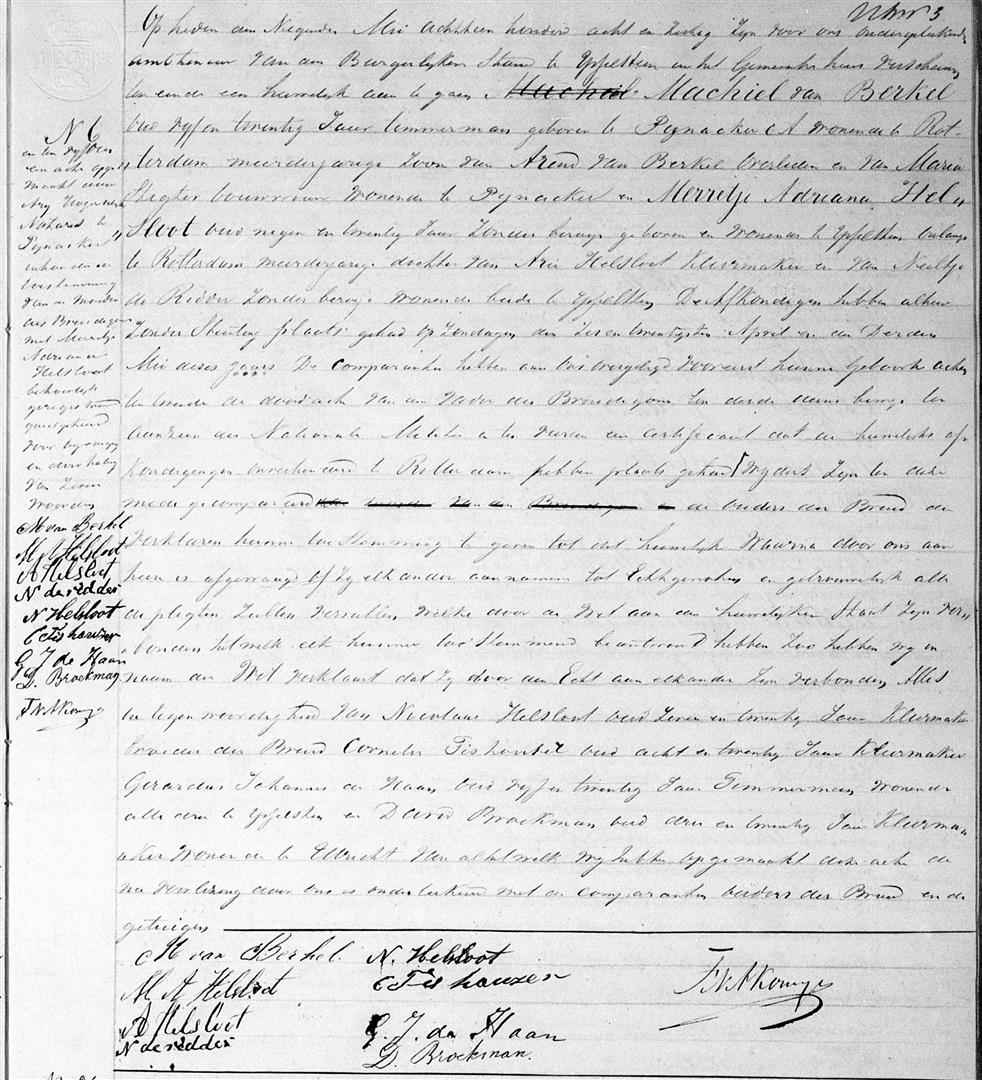 Nmr 3
Op heden den Negenden Mei achttien honderd acht en zestig zijn voor ons ondergeteekende
ambtenaar van den Burgerlijken Stand te IJsselstein in het Gemeente huis verschenen
ten einde een huwelijk aan te gaan Machiel van Berkel
oud vijf en twintig Jaar timmerman geboren te Pijnacker wonende te Rot-
terdam meerderjarige zoon van Arend van Berkel overleden en van Maria
bouwvrouw wonende te Pijnacker en Merretje Adriana Hel„
sloot oud negen en twintig Jaar zonder beroep geboren en wonende te IJsselstein onlangs
te Rotterdam meerderjarige dochter van Arie Helsloot Kleermaker en van Neeltje
de Ridder zonder beroep wonende beide te IJsselstein De Afkondigingen hebben alhier
zonder Stuiting plaats gehad op Zondagen den Zes en twintigsten April en den Derden
Mei dezes Jaars De Comparanten hebben aan ons overgelegd vooreerst hunne Geboorte acten
ten tweede de doodacte van den vader des Bruidegoms ten derde deens bewijs ten
aanzien der Nationale Militie en ten vierde een certificaat dat de huwelijks af-
kondigingen onverhinderd te Rotterdam hebben plaats gehad wijders zijn ten deze
mede gecompareerd de ouders der Bruid die
verklaren hunne toe Stemming te geven tot dit huwelijk Waarna door ons aan
hen is afgevraagd of zij elkander aannemen tot Echtgenoten en getrouwelijk alle
de pligten zullen vervullen welke door de Wet aan den huwelijken Staat zijn ver„
bonden hetwelk elk hunner toe Stemmend beantwoord hebben zoo hebben wij in
naam der Wet verklaard dat zij door den Echt aan elkander zijn verbonden Alles
in tegenwoordigheid van Nicolaas Helsloot oud zeven en twintig Jaar Kleermaker
broeder der Bruid Cornelis Fishouzer oud acht en twintig Jaar Kleermaker
Gerardus Johannes de Haan oud vijf en twintig Jaar Timmerman wonende
alle drie te IJsselstein en David Broekman oud drie en twintig Jaar Kleerma„
ker wonende te Utrecht van al hetwelk wij hebben opgemaakt deze acte die
na voorlezing door ons is onderteekend met de comparanten ouders der Bruid en de
getuigen
N 6
en ten vijfden
een acte opge„
maakt door
Arij Hoogewerf
Notaris te
Pijnacker
inhoudende
toestemming
van de moeder
des Bruidegoms
met Merretje
Adriana
Helsloot
behoorlijk
geregistreerd
goedgekeurd
voor bijvoeging
en doorhaling
van zeven
woorden
M van Berkel
M A Helsloot
A Helsloot
N de ridder
N Helsloot
C Fishouzer
G J de Haan
D. Broekman
M van Berkel N. Helsloot
M A Helsloot C Fishouzer
A Helsloot G. J. de Haan
N de ridder D. Broekman.